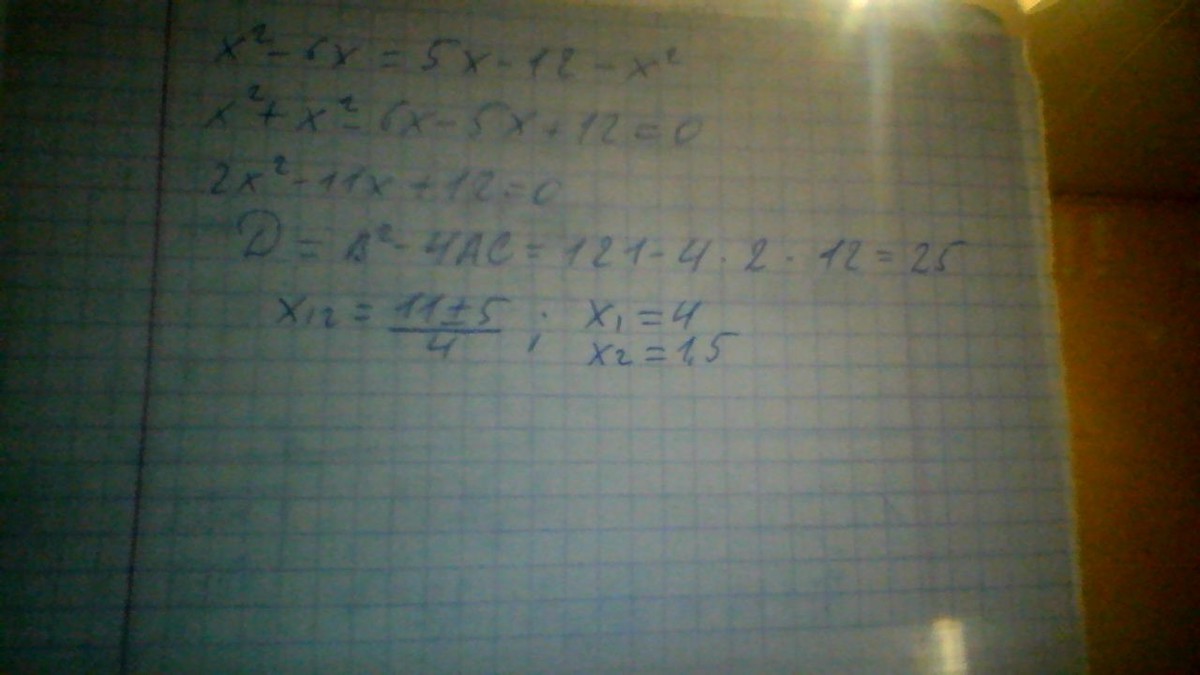 x² - 6x = 5x - 12 - x²
x² + x² - 6x - 5x + 12 = 0
2x² - 11x + 12 = 0
D = B² - 4AC = 121 - 4 · 2 · 12 = 25
x₁₂ = (11 ± 5)/4 ; x₁ = 4
x₂ = 1,5